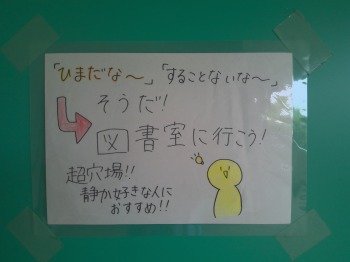 「ひまだな～」「することないな～」
そうだ!
図書室に行こう!
超穴場!!
静か好きな人に
おすすめ!!